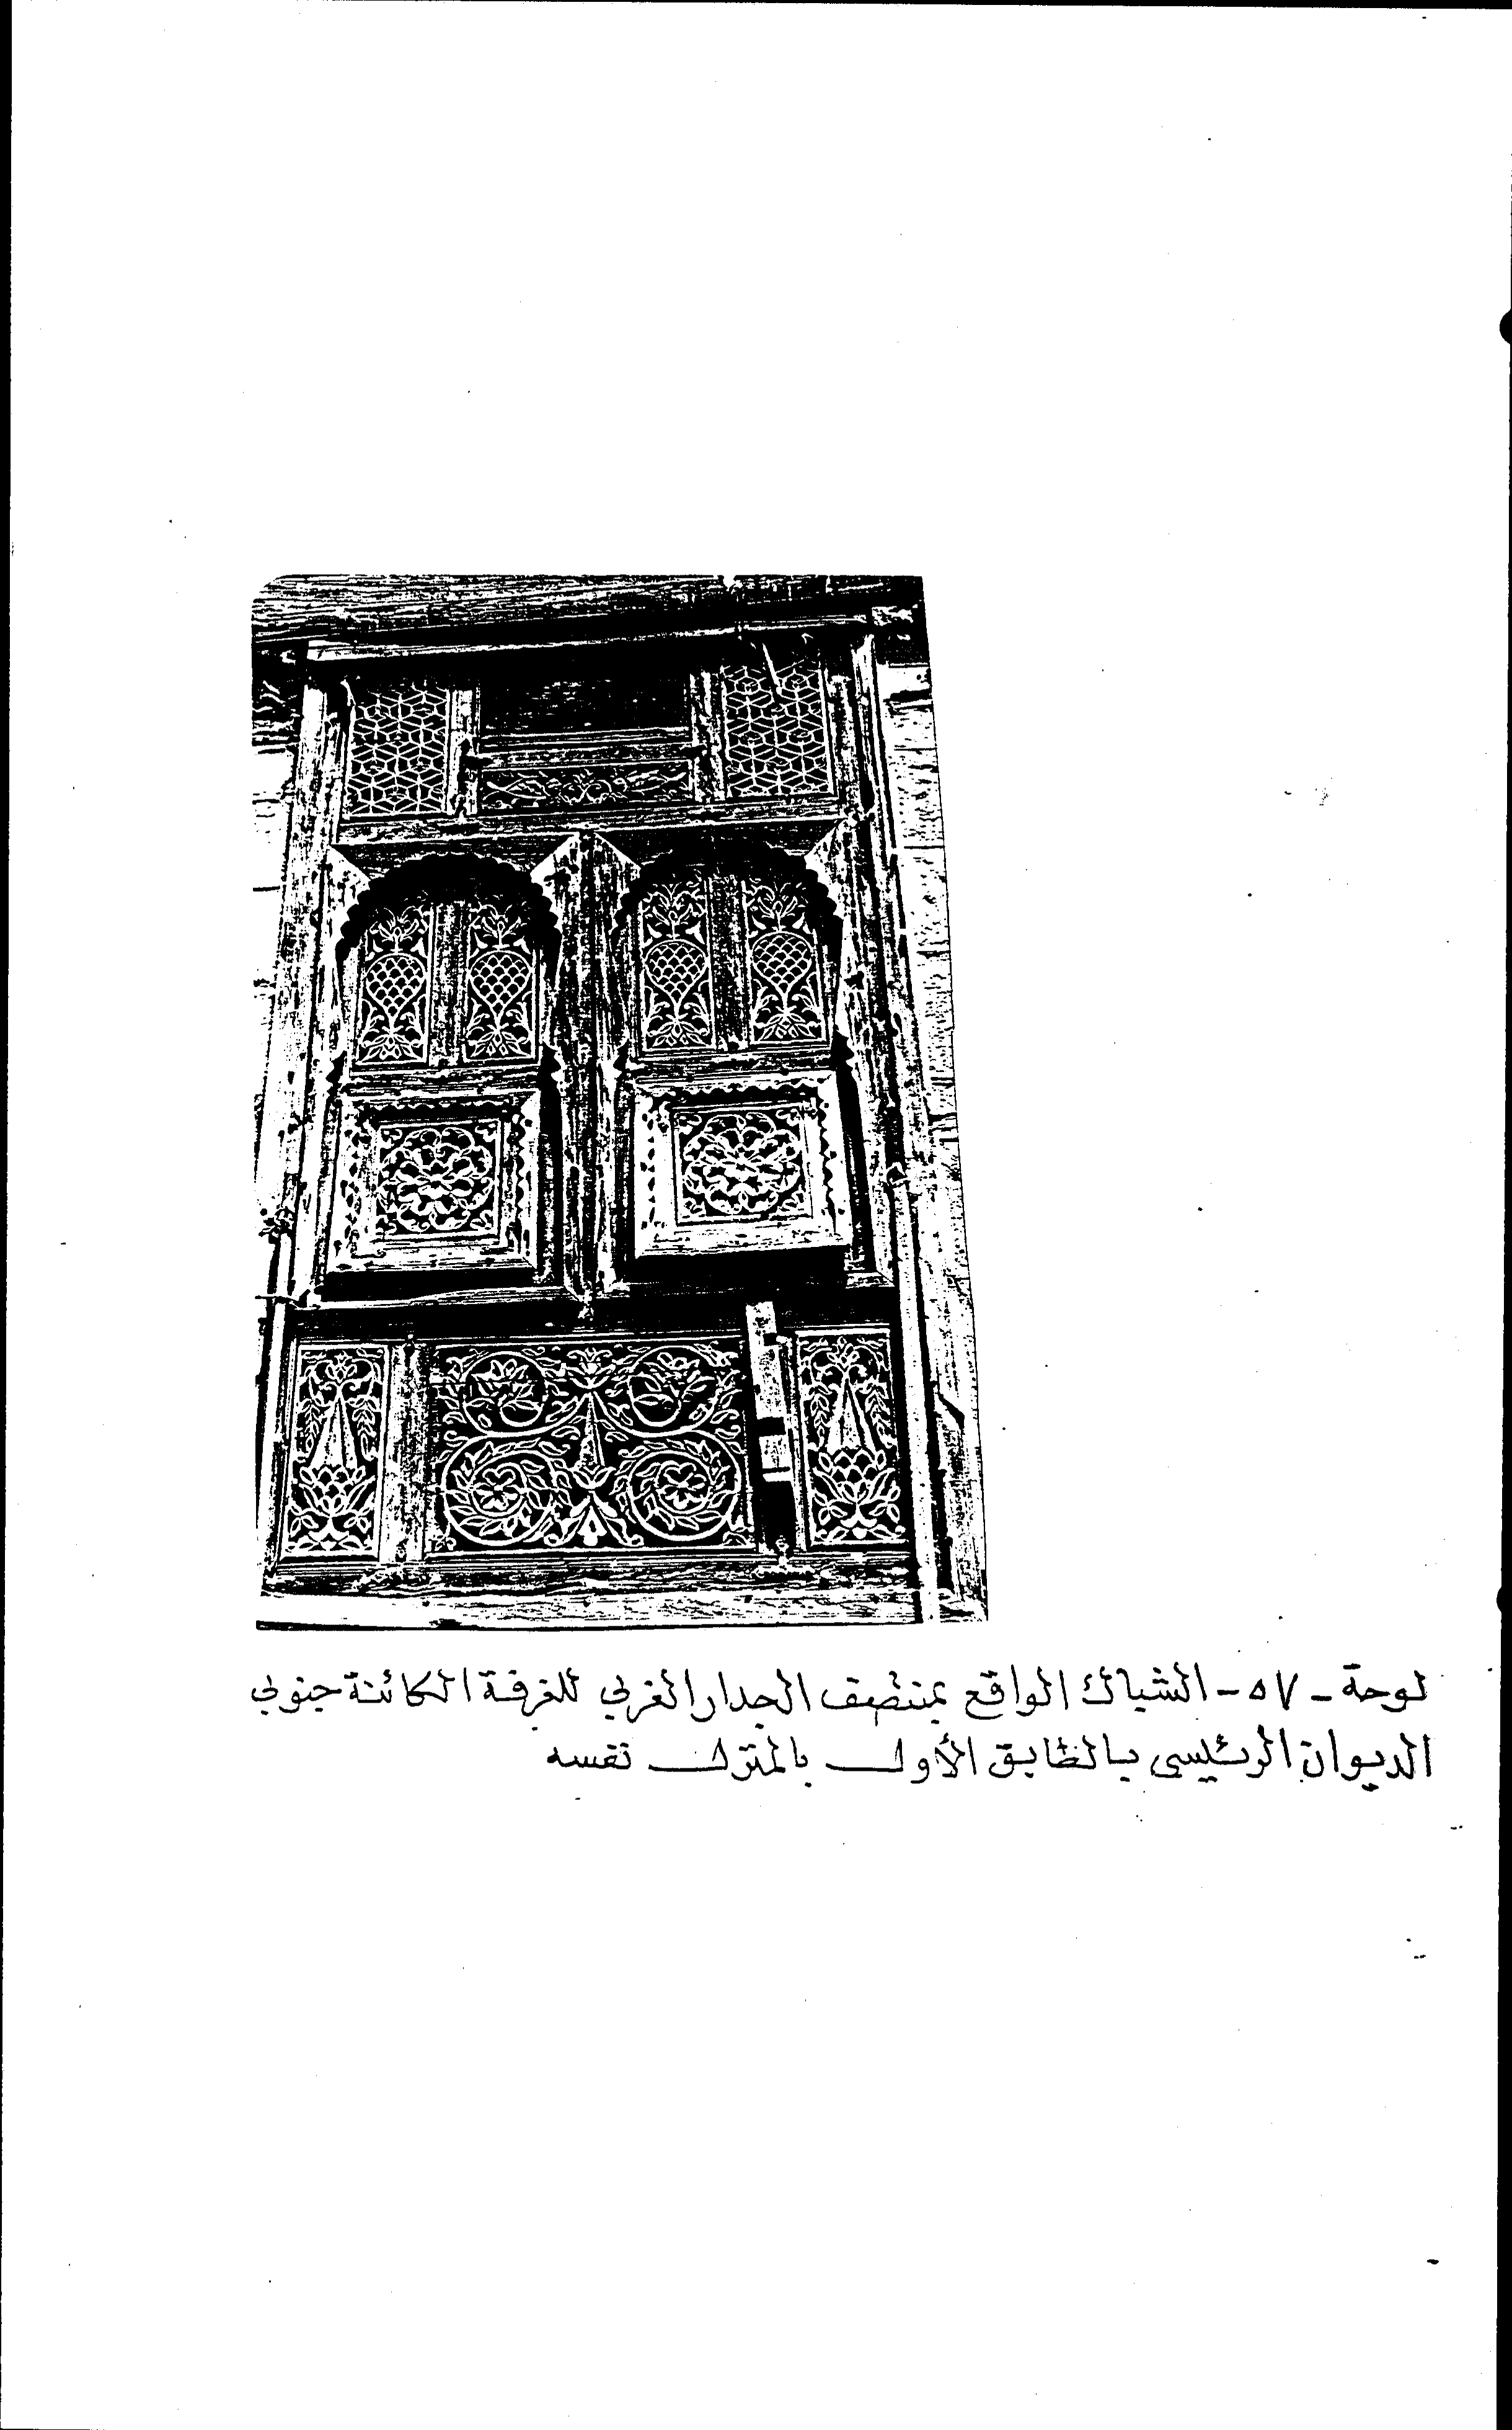 لوحة - ٥٧ - الشباك الواقع بمنتصف الجدار الغربي للغرفة الكائنة جنوبي
الديوان الرئيسى بالطابق الأول بالمنزل نفسه